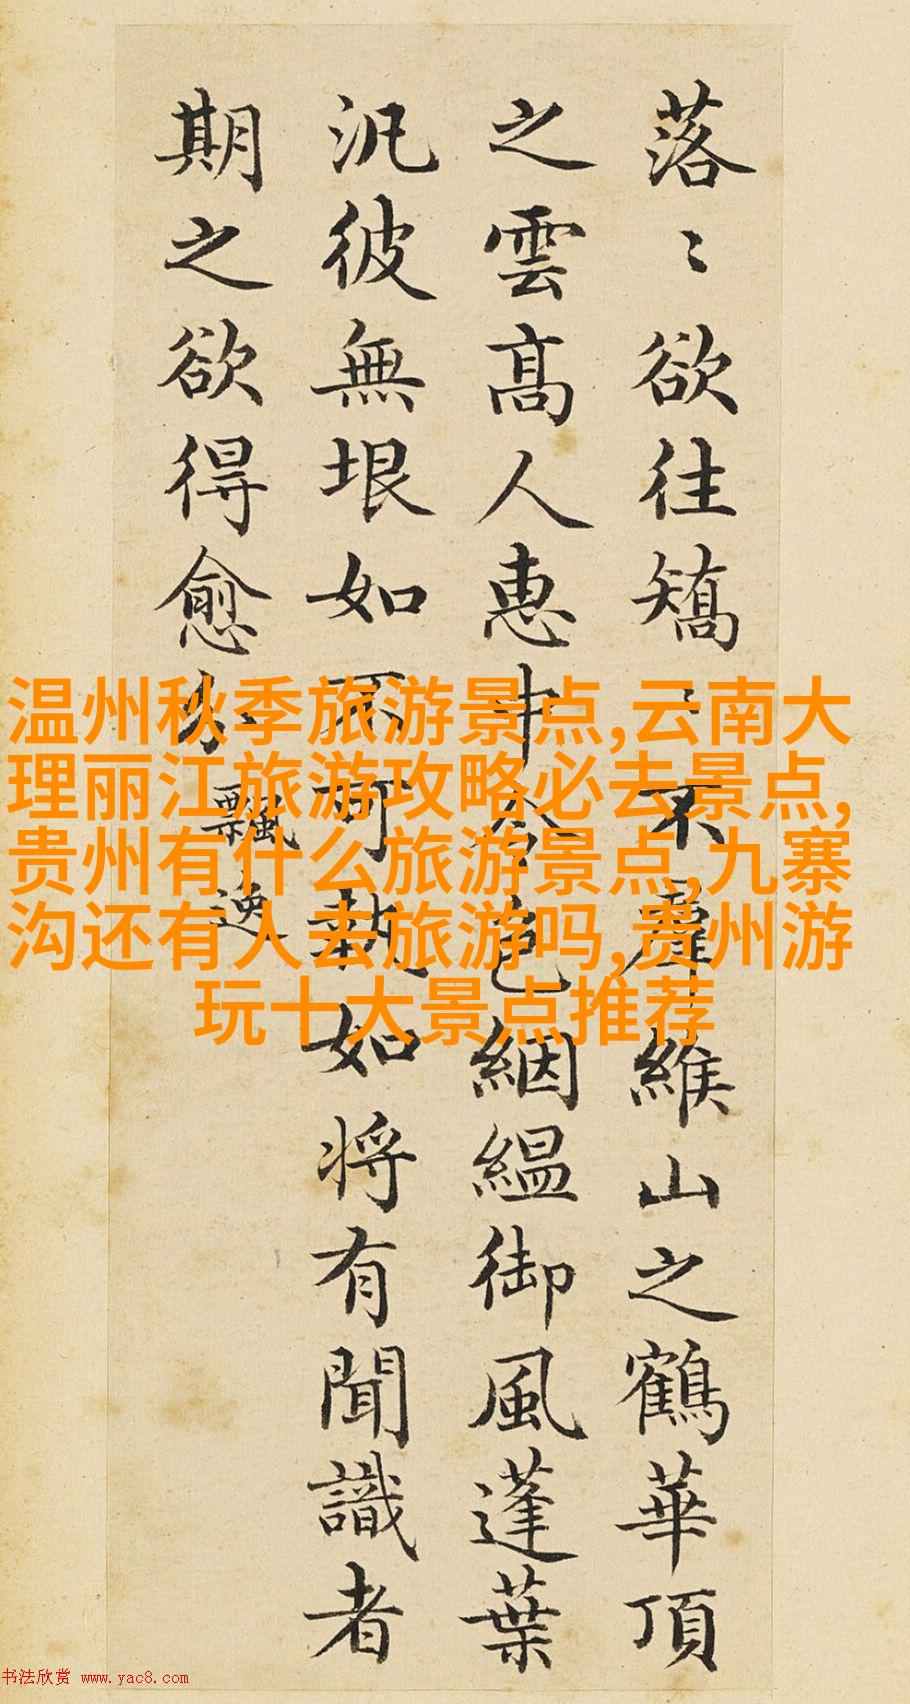 落〻欲往矯〻不羣緱山之鶴華頂
之雲髙人惠中令色絪緼御風蓬葉
汎彼無垠如不可執如将有聞識者
期之欲得愈分
飄逸
温州秋季旅游景点,云南大
理丽江旅游攻略必去景点,
贵州有什么旅游景点,九寨
沟还有人去旅游吗,贵州游
玩十大景点推荐
书法欣赏 www.yac8.com